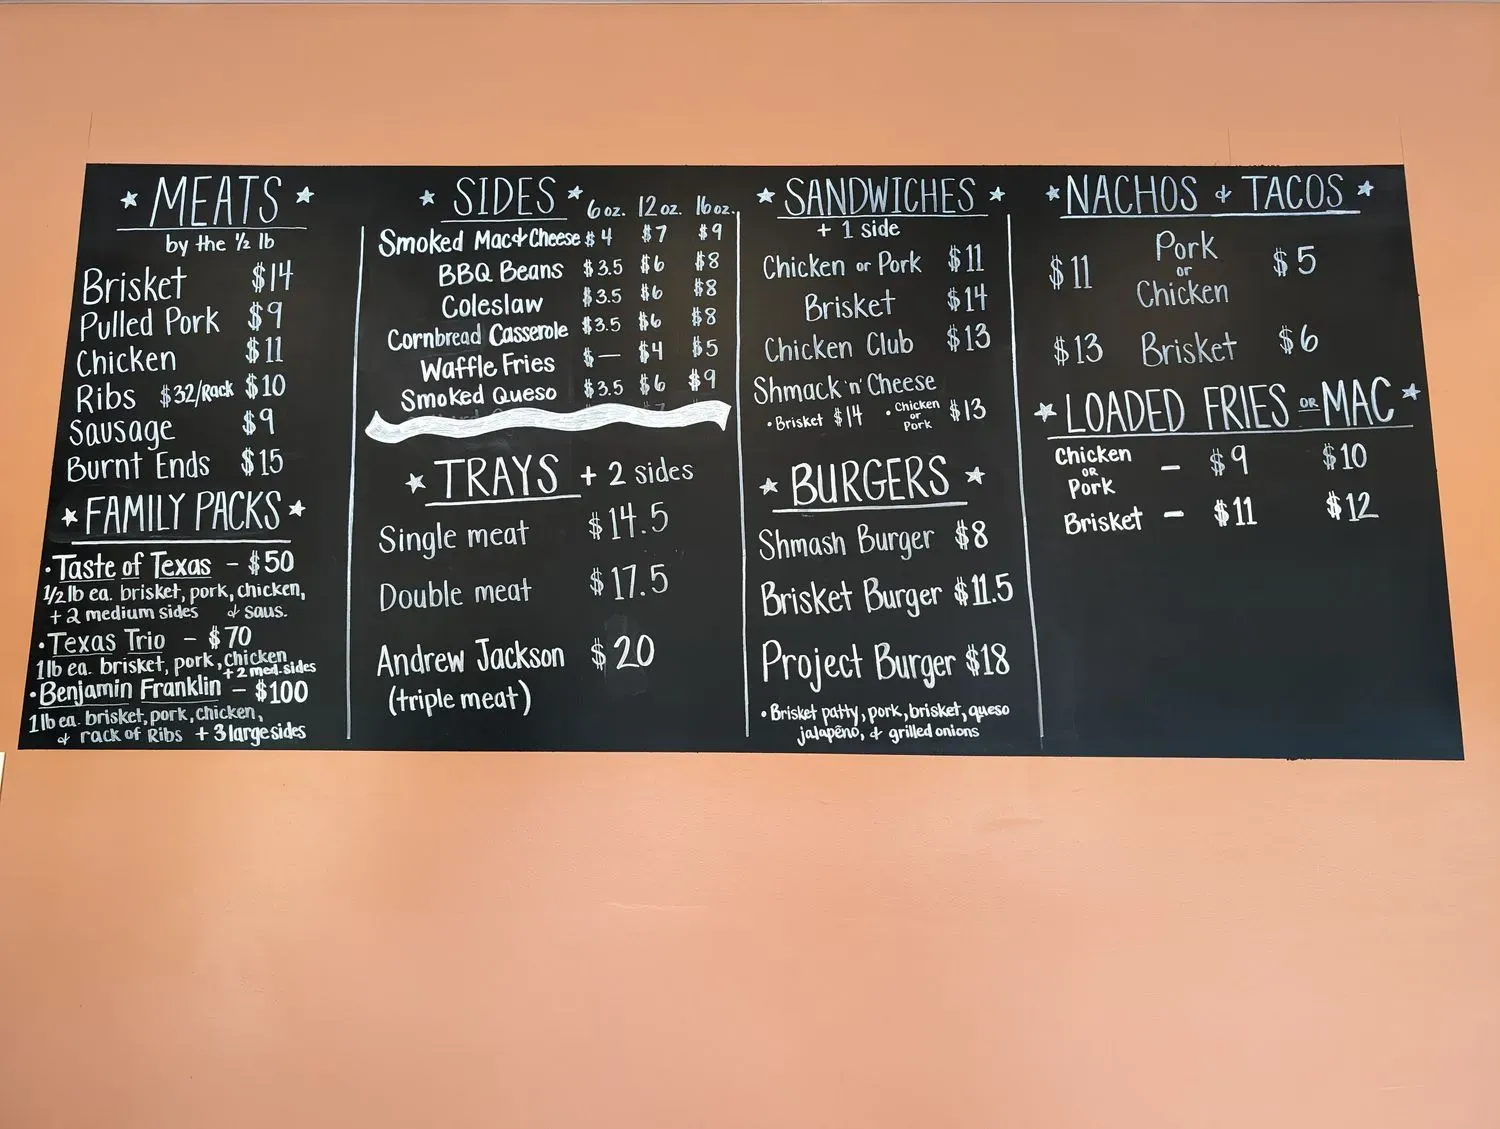 MEATS
by the 1/2 lb
Brisket $14
Pulled Pork $9
Chicken $11
Ribs $32/Rack $10
Sausage $9
Burnt Ends $15
FAMILY PACKS
• Taste of Texas – $50
1/2 lb ea. brisket, pork, chicken,
+ 2 medium sides & saus.
• Texas Trio – $70
1 lb ea. brisket, pork, chicken
+ 2 med. sides
• Benjamin Franklin – $100
1 lb ea. brisket, pork, chicken,
& rack of Ribs + 3 large sides
SIDES 6 oz. 12 oz. 16 oz.
Smoked Mac & Cheese $4 $7 $9
BBQ Beans $3.5 $6 $8
Coleslaw $3.5 $6 $8
Cornbread Casserole $3.5 $6 $8
Waffle Fries $— $4 $5
Smoked Queso $3.5 $6 $9
TRAYS + 2 sides
Single meat $14.5
Double meat $17.5
Andrew Jackson $20
(triple meat)
SANDWICHES
+ 1 side
Chicken or Pork $11
Brisket $14
Chicken Club $13
Shmack 'n' Cheese
• Brisket $14 • Chicken or Pork $13
BURGERS
Shmash Burger $8
Brisket Burger $11.5
Project Burger $18
• Brisket patty, pork, brisket, queso
jalapeño, & grilled onions
NACHOS & TACOS
$11 Pork or Chicken $5
$13 Brisket $6
LOADED FRIES OR MAC
Chicken OR Pork – $9 $10
Brisket – $11 $12